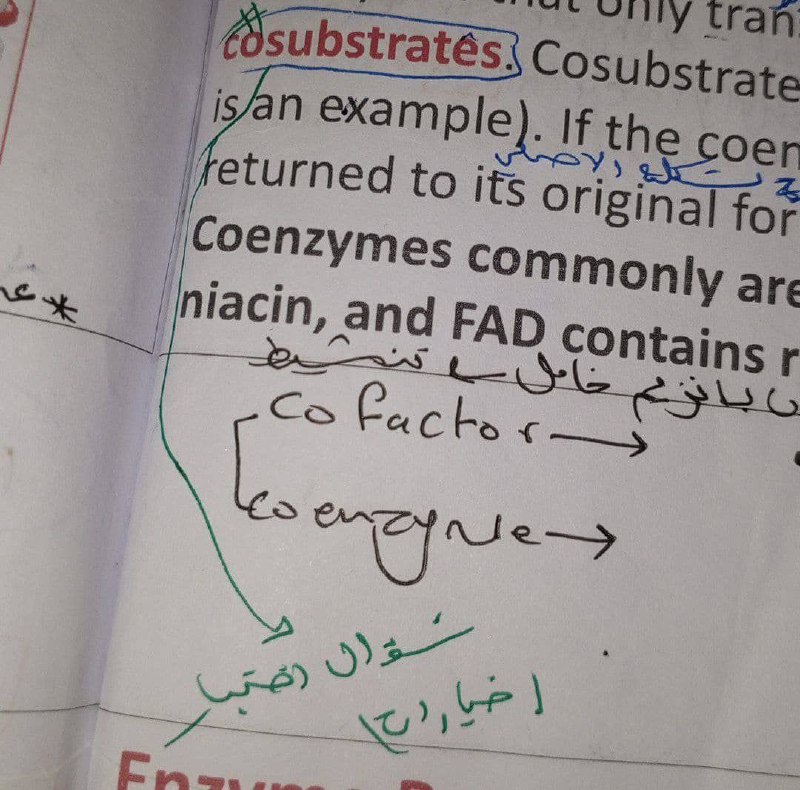 that only tran
cosubstrates. Cosubstrate
is an example). If the coen
returned to its original for
Coenzymes commonly are
niacin, and FAD contains r
خامل تنشيط
Cofactor →
Coenzyme →
سؤال اختبار
Enzyme